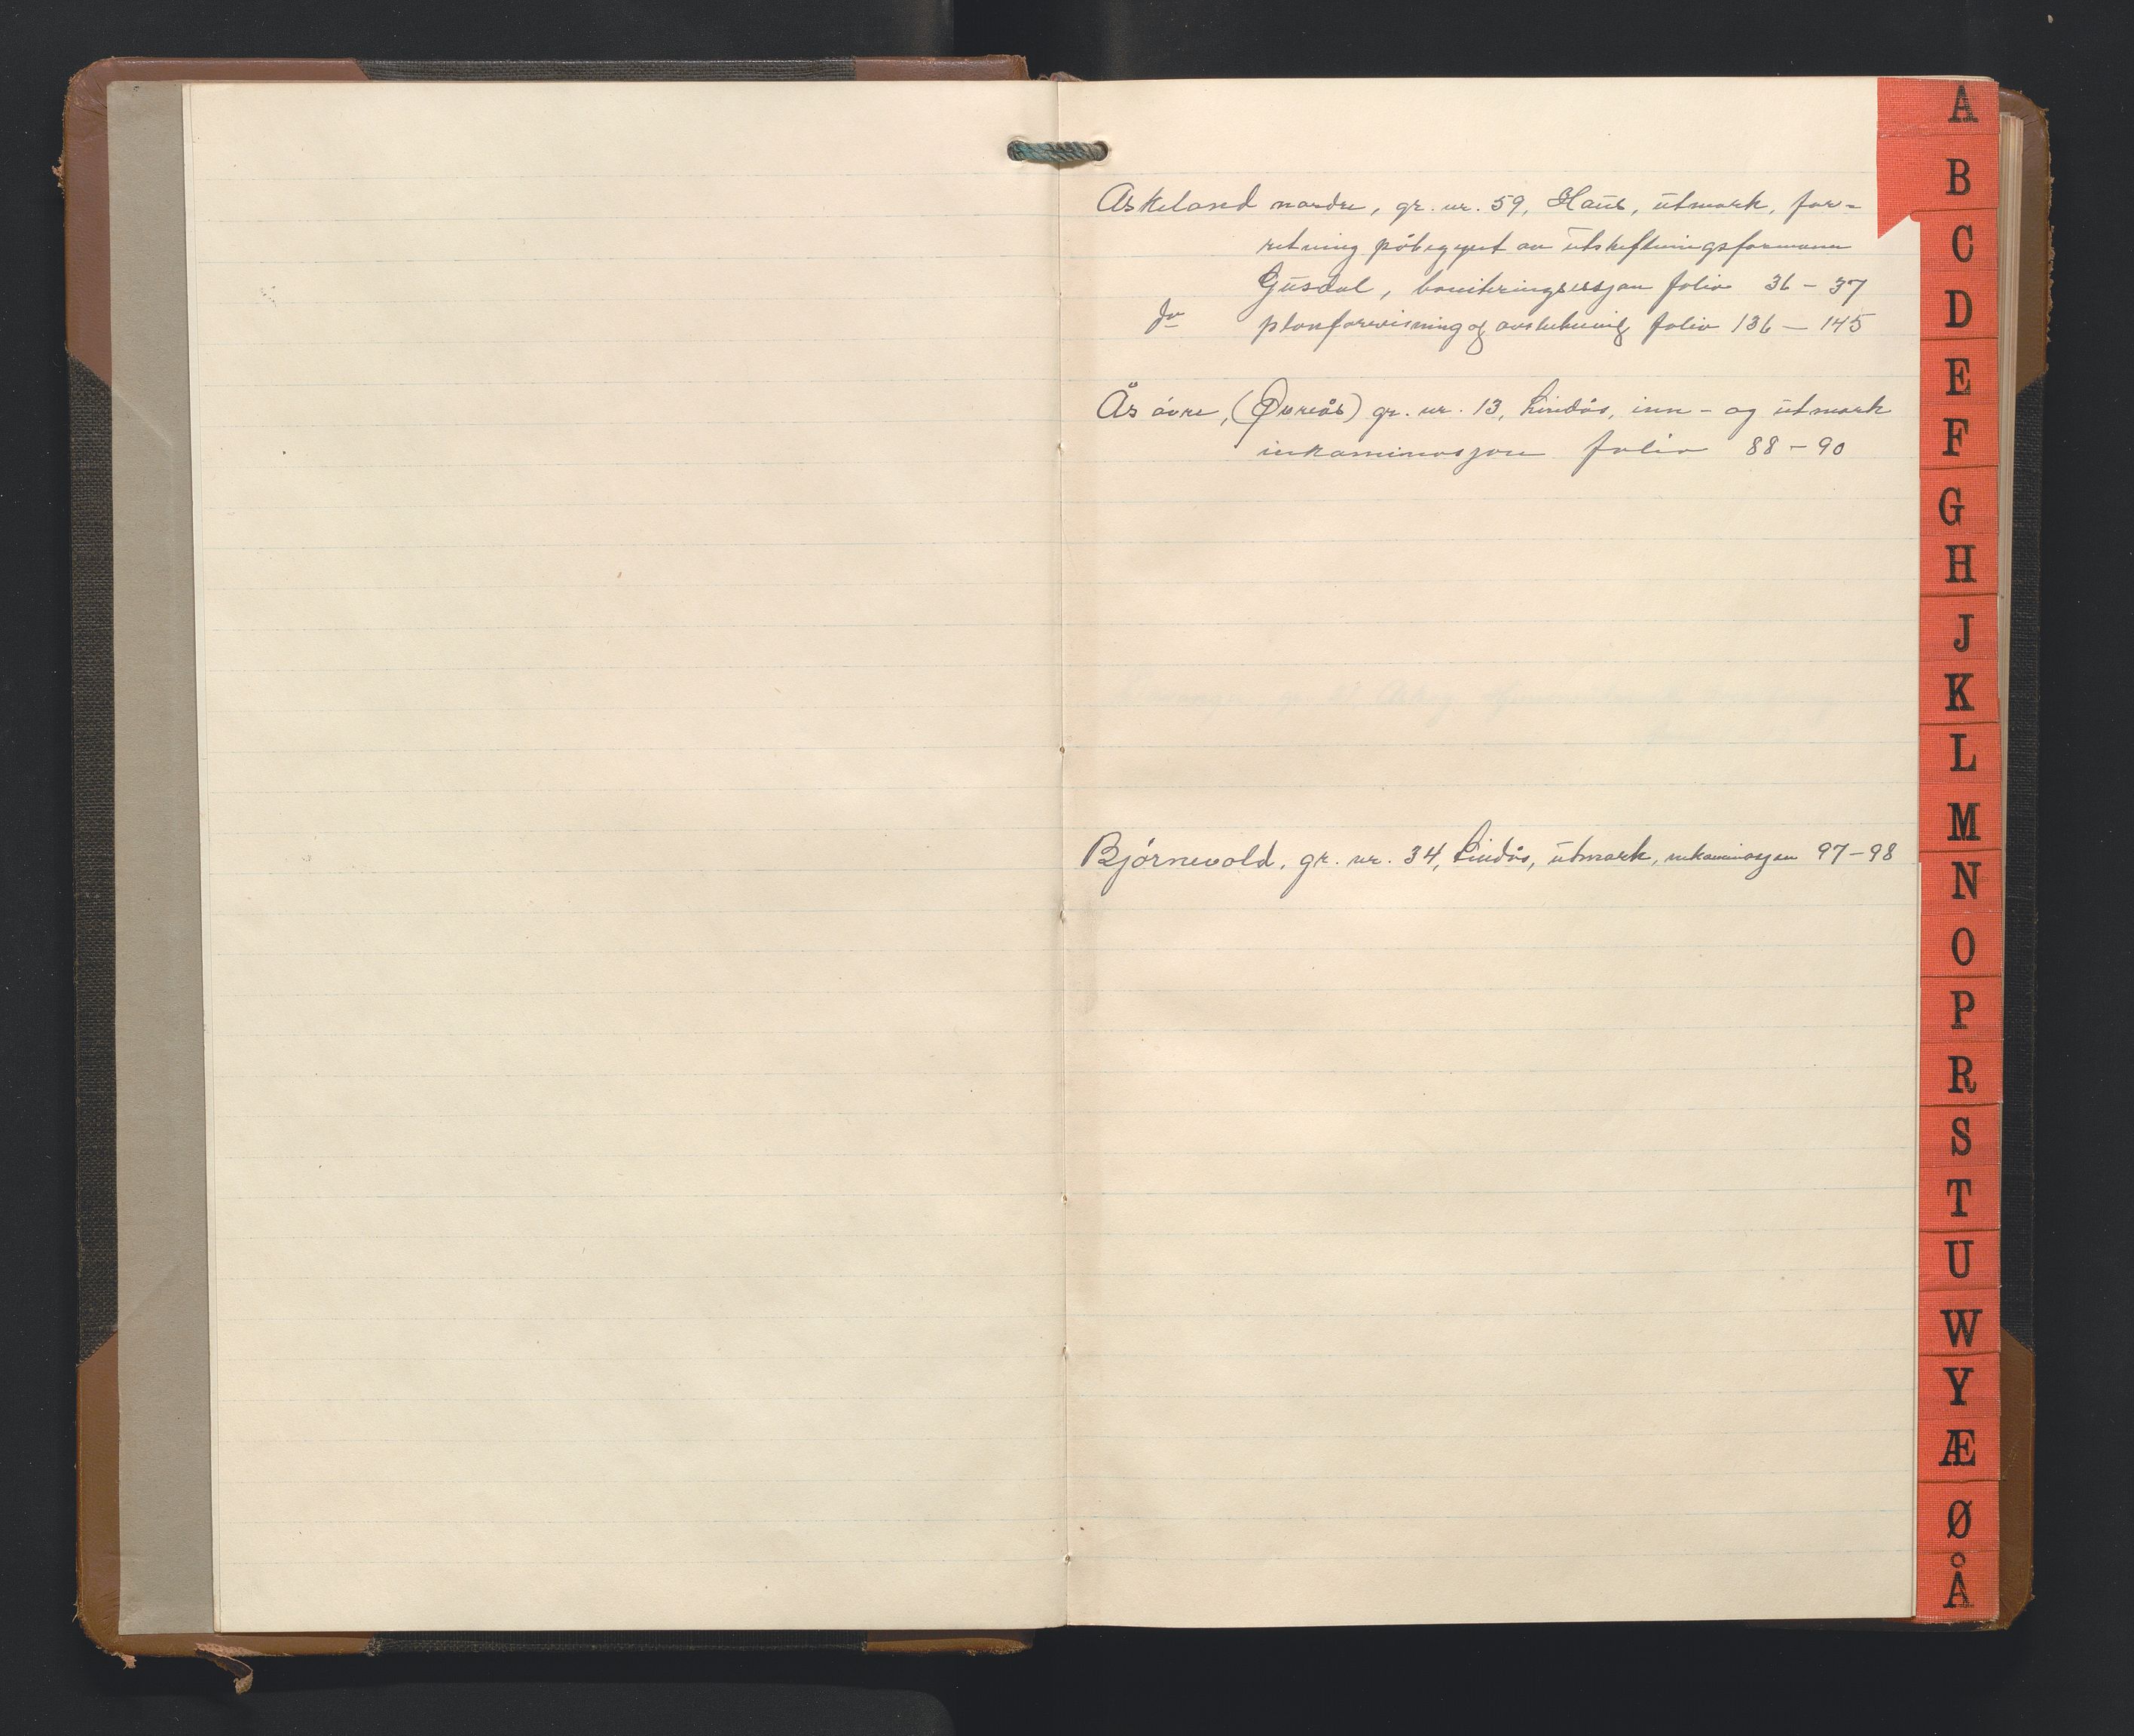 Askeland nordre, gr. nr. 59, Haus, utmark, for-
retning påbegynt av utskiftningsformann
Gusdal, boniteringssesjon folio 36 – 37
do planforevisning og avslutning folio 136 – 145
Ås øvre, (Øvreås) gr. nr. 13, Lindås, inn- og utmark
inkaminasjon folio 88 – 90
Bjørnevold, gr. nr. 34, Lindås, utmark, inkaminasjon 97–98
A
B
C
D
E
F
G
H
J
K
L
M
N
O
P
R
S
T
U
W
Y
Æ
Ø
Å